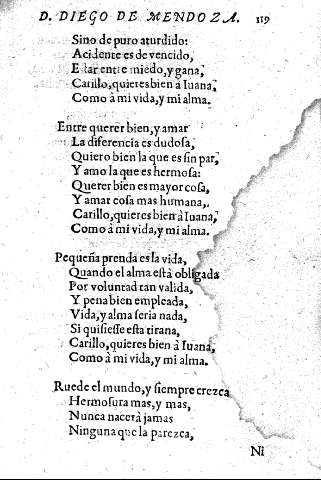 D. DIEGO DE MENDOZA. 119
Sino de puro aturdido:
Acidente es de vencido,
Estar entre miedo, y gana,
Carillo, quieres bien à Iuana,
Como à mi vida, y mi alma.
Entre querer bien, y amar
La diferencia es dudosa,
Quiero bien la que es sin par,
Y amo la que es hermosa:
Querer bien es mayor cosa,
Y amar cosa mas humana,
Carillo, quieres bien à Iuana,
Como à mi vida, y mi alma.
Pequeña prenda es la vida,
Quando el alma està obligada
Por voluntad tan valida,
Y pena bien empleada,
Vida, y alma seria nada,
Si quisiesse esta tirana,
Carillo, quieres bien à Iuana,
Como à mi vida, y mi alma.
Ruede el mundo, y siempre crezca
Hermosura mas, y mas,
Nunca nacerà jamas
Ninguna que la parezca,
Ni